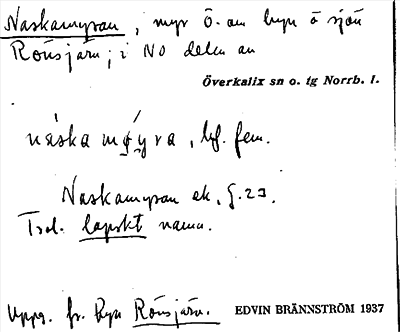 Naskamyran, myr Ö. om byn å sjön
Rönsjärn; i NO delen av
Överkalix sn o. tg Norrb. l.
náska mýra, bf. fem.
Naskamyran ek.
Trol. lapskt namn.
Uppg. fr. byn Rönsjärn.
EDVIN BRÄNNSTRÖM 1937